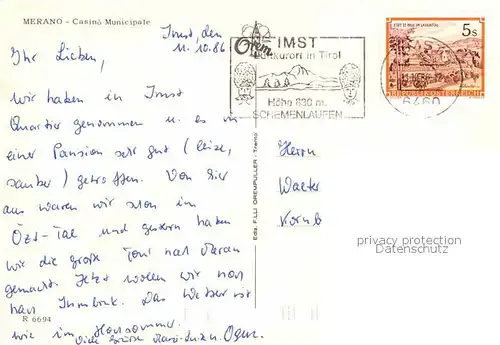 MERANO - Casinò Municipale
Imst, den
11.10.86
Ihr Lieben,
wir haben in Imst
Quartier genommen u. es in
einer Pension sehr gut (leise,
sauber) getroffen. Von hier
aus waren wir schon im
Özt-Tal und gestern haben
wir die große Tour nach Meran
gemacht. Jetzt wollen wir noch
nach Innsbruck. Das Wetter ist
wie im Hochsommer.
Viele Grüße
R 6694
Eds. F.LLI OREMPULLER - Trento
Orem
IMST
Luftkurort in Tirol
Höhe 830 m.
SCHEMENLAUFEN
STIFT ST. PAUL IM LAVANTTAL
5s
REPUBLIK ÖSTERREICH
6460
Herrn
Walter
Kornb
privacy protection
DANIMEX.COM